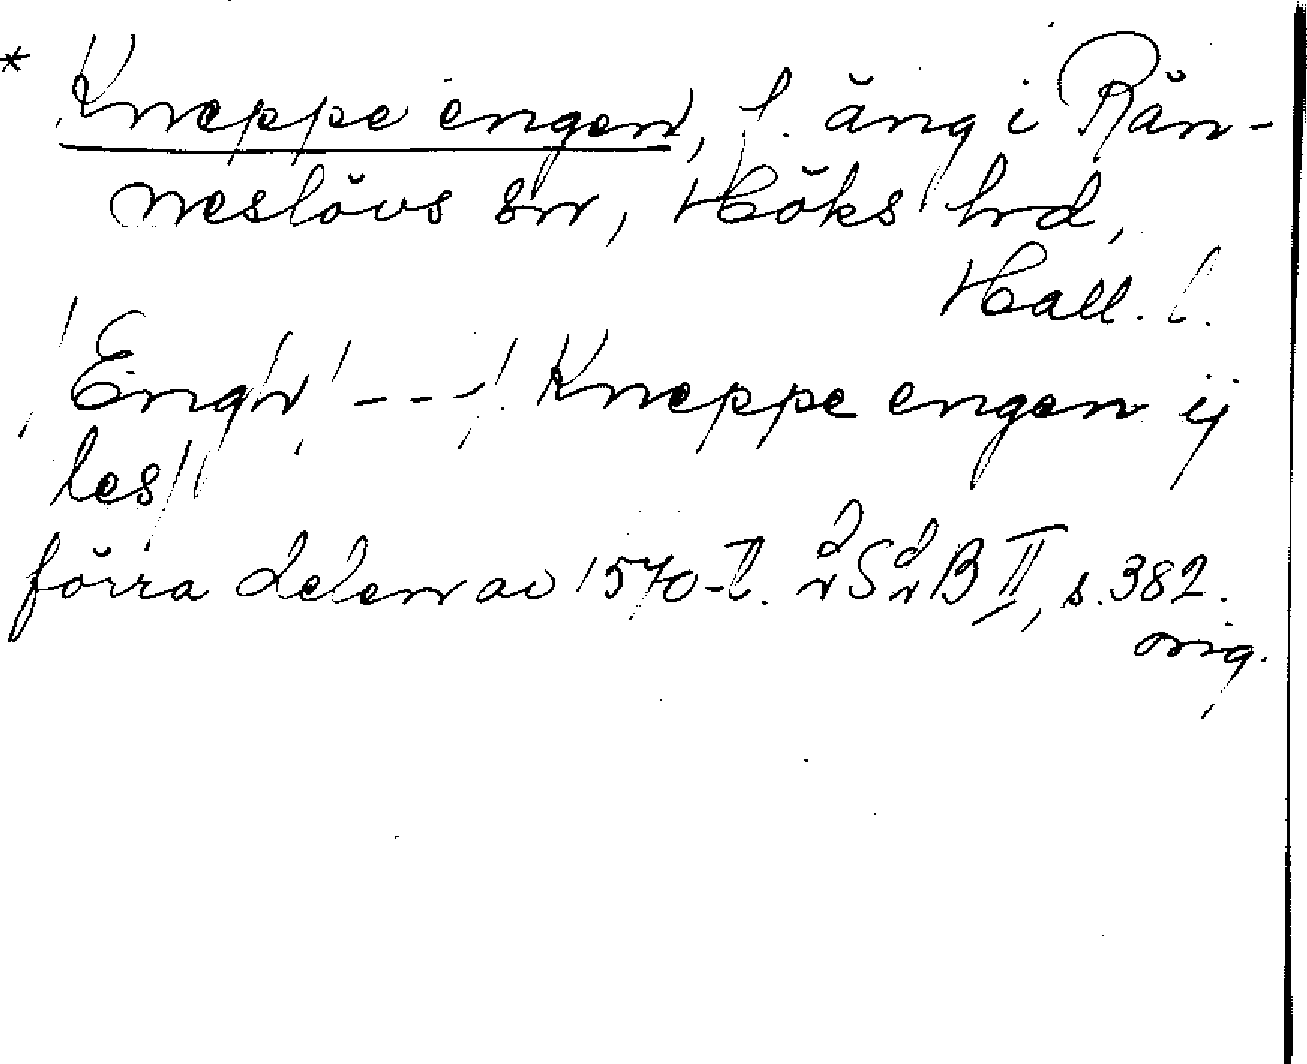 * Kneppe engen, f. äng i Rän-
neslövs sn, Höks hrd,
Hall. l.
/Eng'n/ - - -/ Kneppe engen ij
les/
förra delen av 1570-t. SB II, s. 382.
orig.